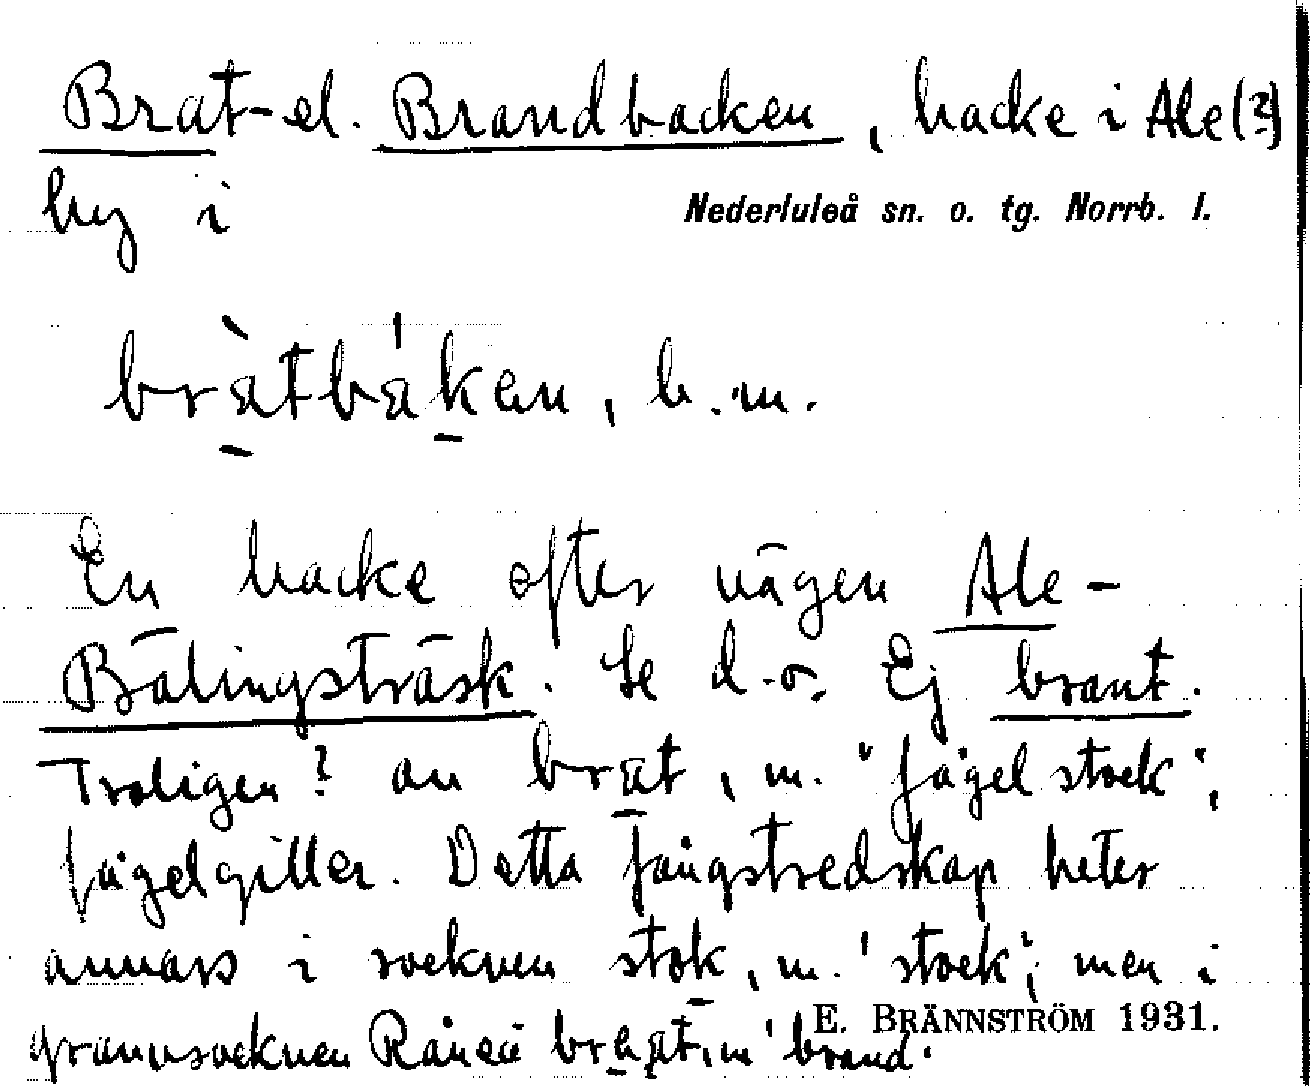 Brat- el. Brandbacken, backe i Ale(?)
by i Nederluleå sn. o. tg. Norrb. l.
bràtbáken, b. m.
En backe efter vägen Ale -
Bälingsträsk. Se d.o. Ej brant.
Troligen? av brat, m. "fågelstock",
fågelgiller. Detta fångstredskap heter
annars i socknen stok, m. 'stock'; men i
grannsocknen Råneå m 'brand'.
E. BRÄNNSTRÖM 1931.